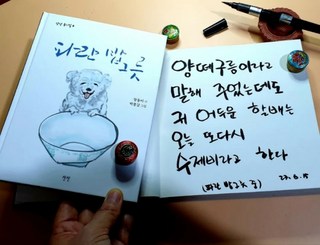 파란 밥그릇
양떼구름이라고
말해 주었는데도
귀 어두운 할배는
오늘 또다시
수제비라고 한다
(파란 밥그릇 중)